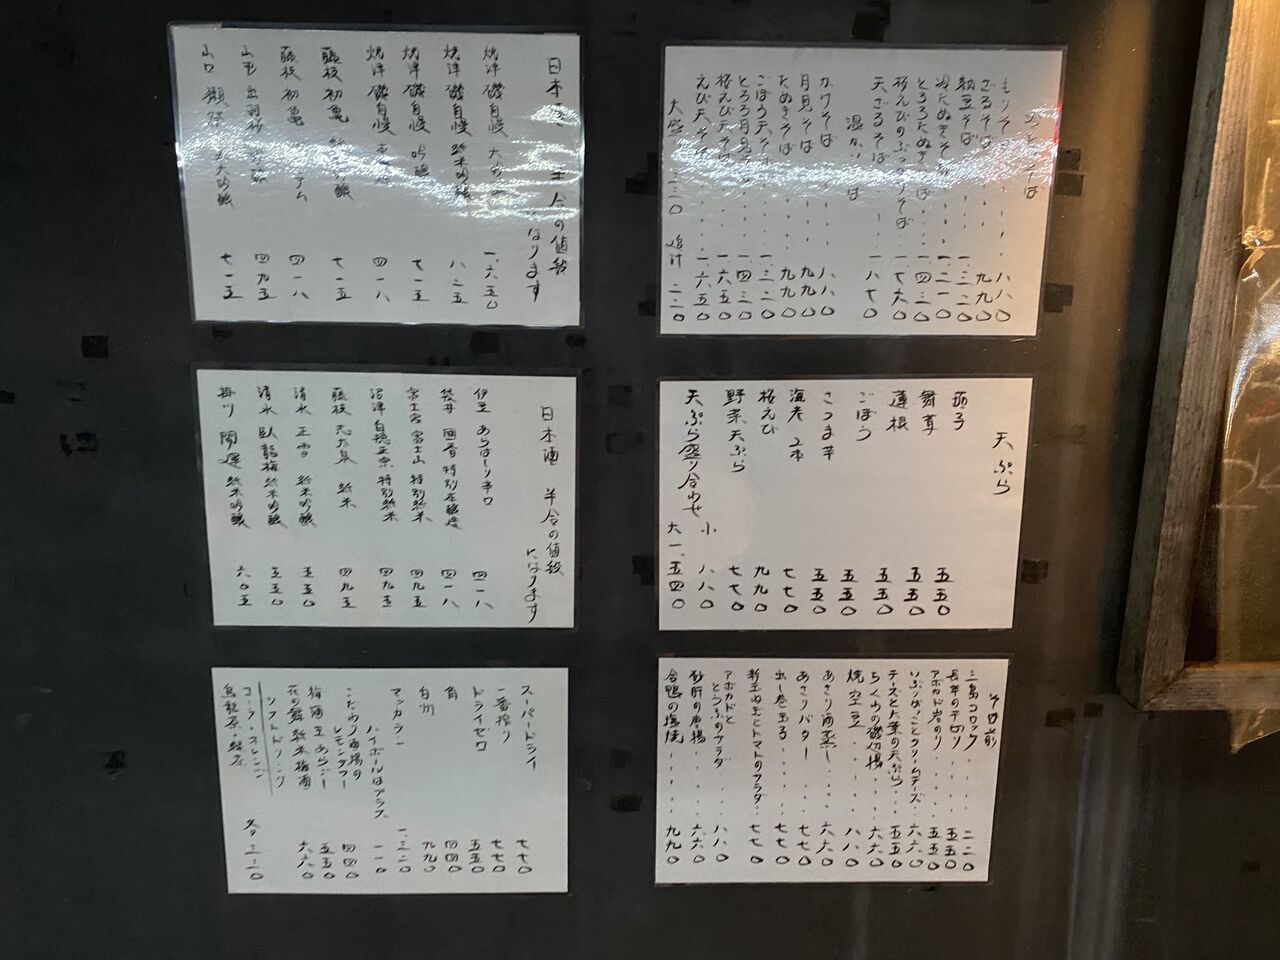 もりそば 八八〇
ざるそば 九九〇
納豆そば 一、三二〇
冷たぬきそば 一、二一〇
とろろたぬきそば 一、四三〇
桜えびのぶっかけそば 一、七六〇
天ざるそば 一、八七〇
温かいそば
かけそば 八八〇
月見そば 九九〇
たぬきそば 九九〇
ごぼう天そば 一、三二〇
とろろ月見そば 一、四三〇
桜えび天そば 一、六五〇
えび天そば 一、六五〇
大盛
追汁 二二〇
日本酒 半合の値段
になります
焼津 磯自慢 一、六五〇
焼津 磯自慢 純米吟醸 八二五
焼津 磯自慢 吟醸 七一五
焼津 磯自慢 四一八
藤枝 初亀 七一五
藤枝 初亀 四一八
山形 出羽桜 四九五
山口 獺祭 七一五
天ぷら
茄子 五五〇
舞茸 五五〇
蓮根 五五〇
ごぼう 五五〇
さつま芋 五五〇
海老 2本 七七〇
桜えび 九九〇
野菜天ぷら 七七〇
天ぷら盛り合わせ 小 八八〇
大 一、五四〇
日本酒 半合の値段
になります
伊豆 あらばしり辛口 四一八
袋井 國香 特別本醸造 四一八
富士宮 富士山 特別純米 四九五
沼津 白隠正宗 特別純米 四九五
藤枝 志太泉 純米 四九五
清水 正雪 純米吟醸 五五〇
清水 臥龍梅 純米吟醸 五五〇
掛川 開運 純米吟醸 六〇五
三島コロッケ 二二〇
長芋の千切り 五五〇
アボカド岩のり 五五〇
いぶりがっことクリームチーズ 六六〇
チーズと大葉の天ぷら 五五〇
ちくわの磯辺揚 六六〇
焼空豆 八八〇
あさり酒蒸し 六六〇
あさりバター 七七〇
出し巻玉子 七七〇
新玉ねぎとトマトのサラダ 七七〇
アボカドと
とうふのサラダ 八八〇
砂肝の唐揚 六六〇
合鴨の塩焼 九九〇
スーパードライ 七七〇
一番搾り 七七〇
ドライゼロ 五五〇
角 四四〇
白州 九九〇
マッカラン 一、三二〇
ハイボールはプラス 一一〇
こだわり酒場の
レモンサワー 四四〇
梅酒 五五〇
花の舞 純米梅酒 六六〇
ソフトドリンク
コーラ・オレンジ
烏龍茶・緑茶 各々 三三〇